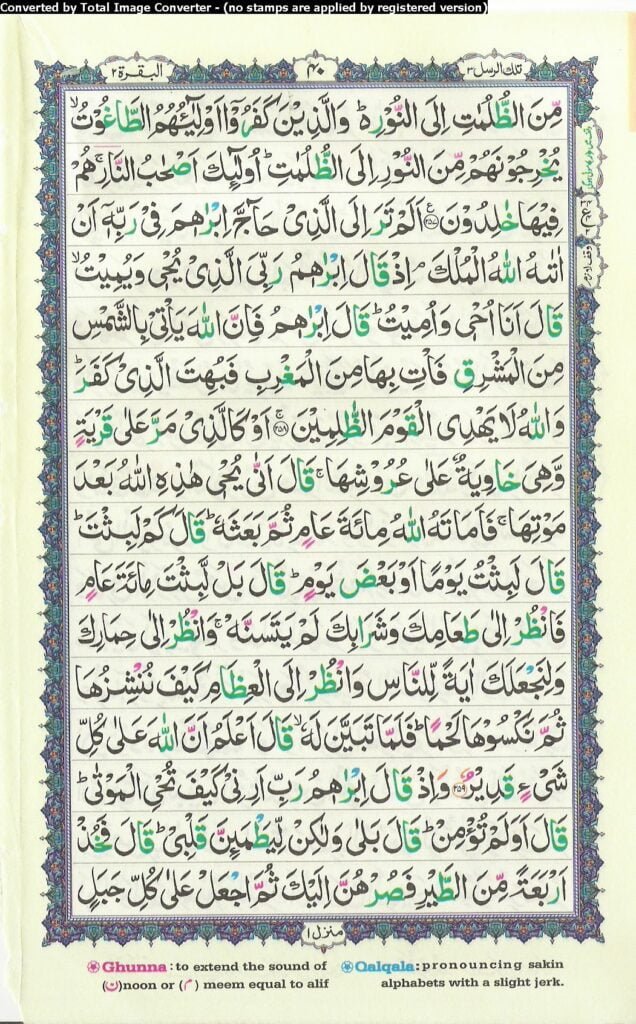 Converted by Total Image Converter - (no stamps are applied by registered version)
تلك الرسل ٣
٤٠
البقرة ٢
مِّنَ الظُّلُمٰتِ اِلَى النُّوْرِ ؕ۬ وَالَّذِیْنَ كَفَرُوْۤا اَوْلِیٰٓـُٔهُمُ الطَّاغُوْتُ ۙ
یُخْرِجُوْنَهُمْ مِّنَ النُّوْرِ اِلَی الظُّلُمٰتِ ؕ اُولٰٓئِكَ اَصْحٰبُ النَّارِ ۚ هُمْ
فِیْهَا خٰلِدُوْنَ ۟ اَلَمْ تَرَ اِلَی الَّذِیْ حَآجَّ اِبْرٰهٖمَ فِیْ رَبِّهٖۤ اَنْ
اٰتٰىهُ اللّٰهُ الْمُلْكَ ۘ اِذْ قَالَ اِبْرٰهٖمُ رَبِّیَ الَّذِیْ یُحْیٖ وَیُمِیْتُ ۙ
قَالَ اَنَا اُحْیٖ وَاُمِیْتُ ؕ قَالَ اِبْرٰهٖمُ فَاِنَّ اللّٰهَ یَاْتِیْ بِالشَّمْسِ
مِنَ الْمَشْرِقِ فَاْتِ بِهَا مِنَ الْمَغْرِبِ فَبُهِتَ الَّذِیْ كَفَرَ ؕ
وَاللّٰهُ لَا یَهْدِی الْقَوْمَ الظّٰلِمِیْنَ ۚ ﴿۲۵۸﴾ اَوْ كَالَّذِیْ مَرَّ عَلٰی قَرْیَةٍ
وَّهِیَ خَاوِیَةٌ عَلٰی عُرُوْشِهَا ۚ قَالَ اَنّٰی یُحْیٖ هٰذِهِ اللّٰهُ بَعْدَ
مَوْتِهَا ۚ فَاَمَاتَهُ اللّٰهُ مِائَةَ عَامٍ ثُمَّ بَعَثَهٗ ؕ قَالَ كَمْ لَبِثْتَ ؕ
قَالَ لَبِثْتُ یَوْمًا اَوْ بَعْضَ یَوْمٍ ؕ قَالَ بَلْ لَّبِثْتَ مِائَةَ عَامٍ
فَانْظُرْ اِلٰی طَعَامِكَ وَشَرَابِكَ لَمْ یَتَسَنَّهْ ۚ وَانْظُرْ اِلٰی حِمَارِكَ
وَلِنَجْعَلَكَ اٰیَةً لِّلنَّاسِ وَانْظُرْ اِلَی الْعِظَامِ كَیْفَ نُنْشِزُهَا
ثُمَّ نَكْسُوْهَا لَحْمًا ؕ فَلَمَّا تَبَیَّنَ لَهٗ ۙ قَالَ اَعْلَمُ اَنَّ اللّٰهَ عَلٰی كُلِّ
شَیْءٍ قَدِیْرٌ ﴿۲۵۹﴾ وَاِذْ قَالَ اِبْرٰهٖمُ رَبِّ اَرِنِیْ كَیْفَ تُحْیِ الْمَوْتٰی ؕ
قَالَ اَوَلَمْ تُؤْمِنْ ؕ قَالَ بَلٰی وَلٰكِنْ لِّیَطْمَئِنَّ قَلْبِیْ ؕ قَالَ فَخُذْ
اَرْبَعَةً مِّنَ الطَّیْرِ فَصُرْهُنَّ اِلَیْكَ ثُمَّ اجْعَلْ عَلٰی كُلِّ جَبَلٍ
منزل ١
Ghunna : to extend the sound of
(ن) noon or (م) meem equal to alif
Qalqala : pronouncing sakin
alphabets with a slight jerk.